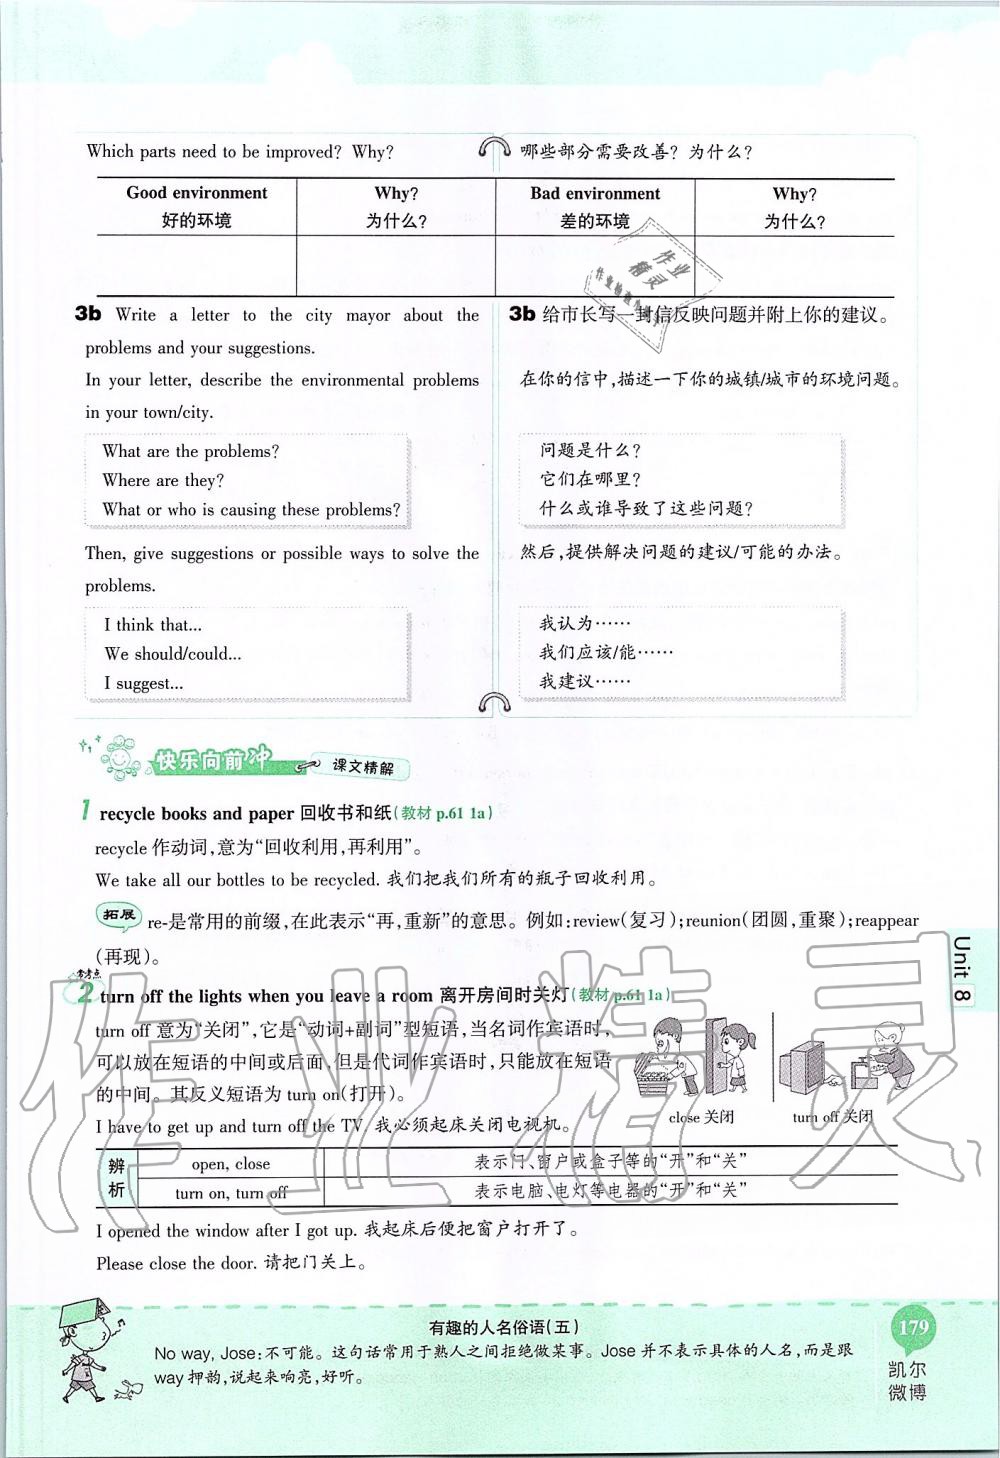 Which parts need to be improved? Why?
哪些部分需要改善？为什么？
Good environment Why? Bad environment Why?
好的环境 为什么? 差的环境 为什么?
3b Write a letter to the city mayor about the
problems and your suggestions.
In your letter, describe the environmental problems
in your town/city.
What are the problems?
Where are they?
What or who is causing these problems?
Then, give suggestions or possible ways to solve the
problems.
I think that...
We should/could...
I suggest...
3b 给市长写一封信反映问题并附上你的建议。
在你的信中,描述一下你的城镇/城市的环境问题。
问题是什么?
它们在哪里?
什么或谁导致了这些问题?
然后,提供解决问题的建议/可能的办法。
我认为……
我们应该/能……
我建议……
作业
精灵
快乐向前冲 课文精解
1 recycle books and paper 回收书和纸(教材 p.61 1a)
recycle 作动词,意为“回收利用,再利用”。
We take all our bottles to be recycled. 我们把我们所有的瓶子回收利用。
拓展 re-是常用的前缀,在此表示“再,重新”的意思。例如:review(复习);reunion(团圆,重聚);reappear
(再现)。
常考点
2 turn off the lights when you leave a room 离开房间时关灯(教材 p.61 1a)
turn off 意为“关闭”,它是“动词+副词”型短语,当名词作宾语时,
可以放在短语的中间或后面,但是代词作宾语时,只能放在短语
的中间。其反义短语为 turn on(打开)。
I have to get up and turn off the TV. 我必须起床关闭电视机。
close 关闭 turn off 关闭
辨析
open, close 表示门、窗户或盒子等的“开”和“关”
turn on, turn off 表示电脑、电灯等电器的“开”和“关”
I opened the window after I got up. 我起床后便把窗户打开了。
Please close the door. 请把门关上。
作业精灵
Unit 8
有趣的人名俗语(五)
No way, Jose:不可能。这句话常用于熟人之间拒绝做某事。Jose 并不表示具体的人名,而是跟
way 押韵,说起来响亮,好听。
179
凯尔
微博